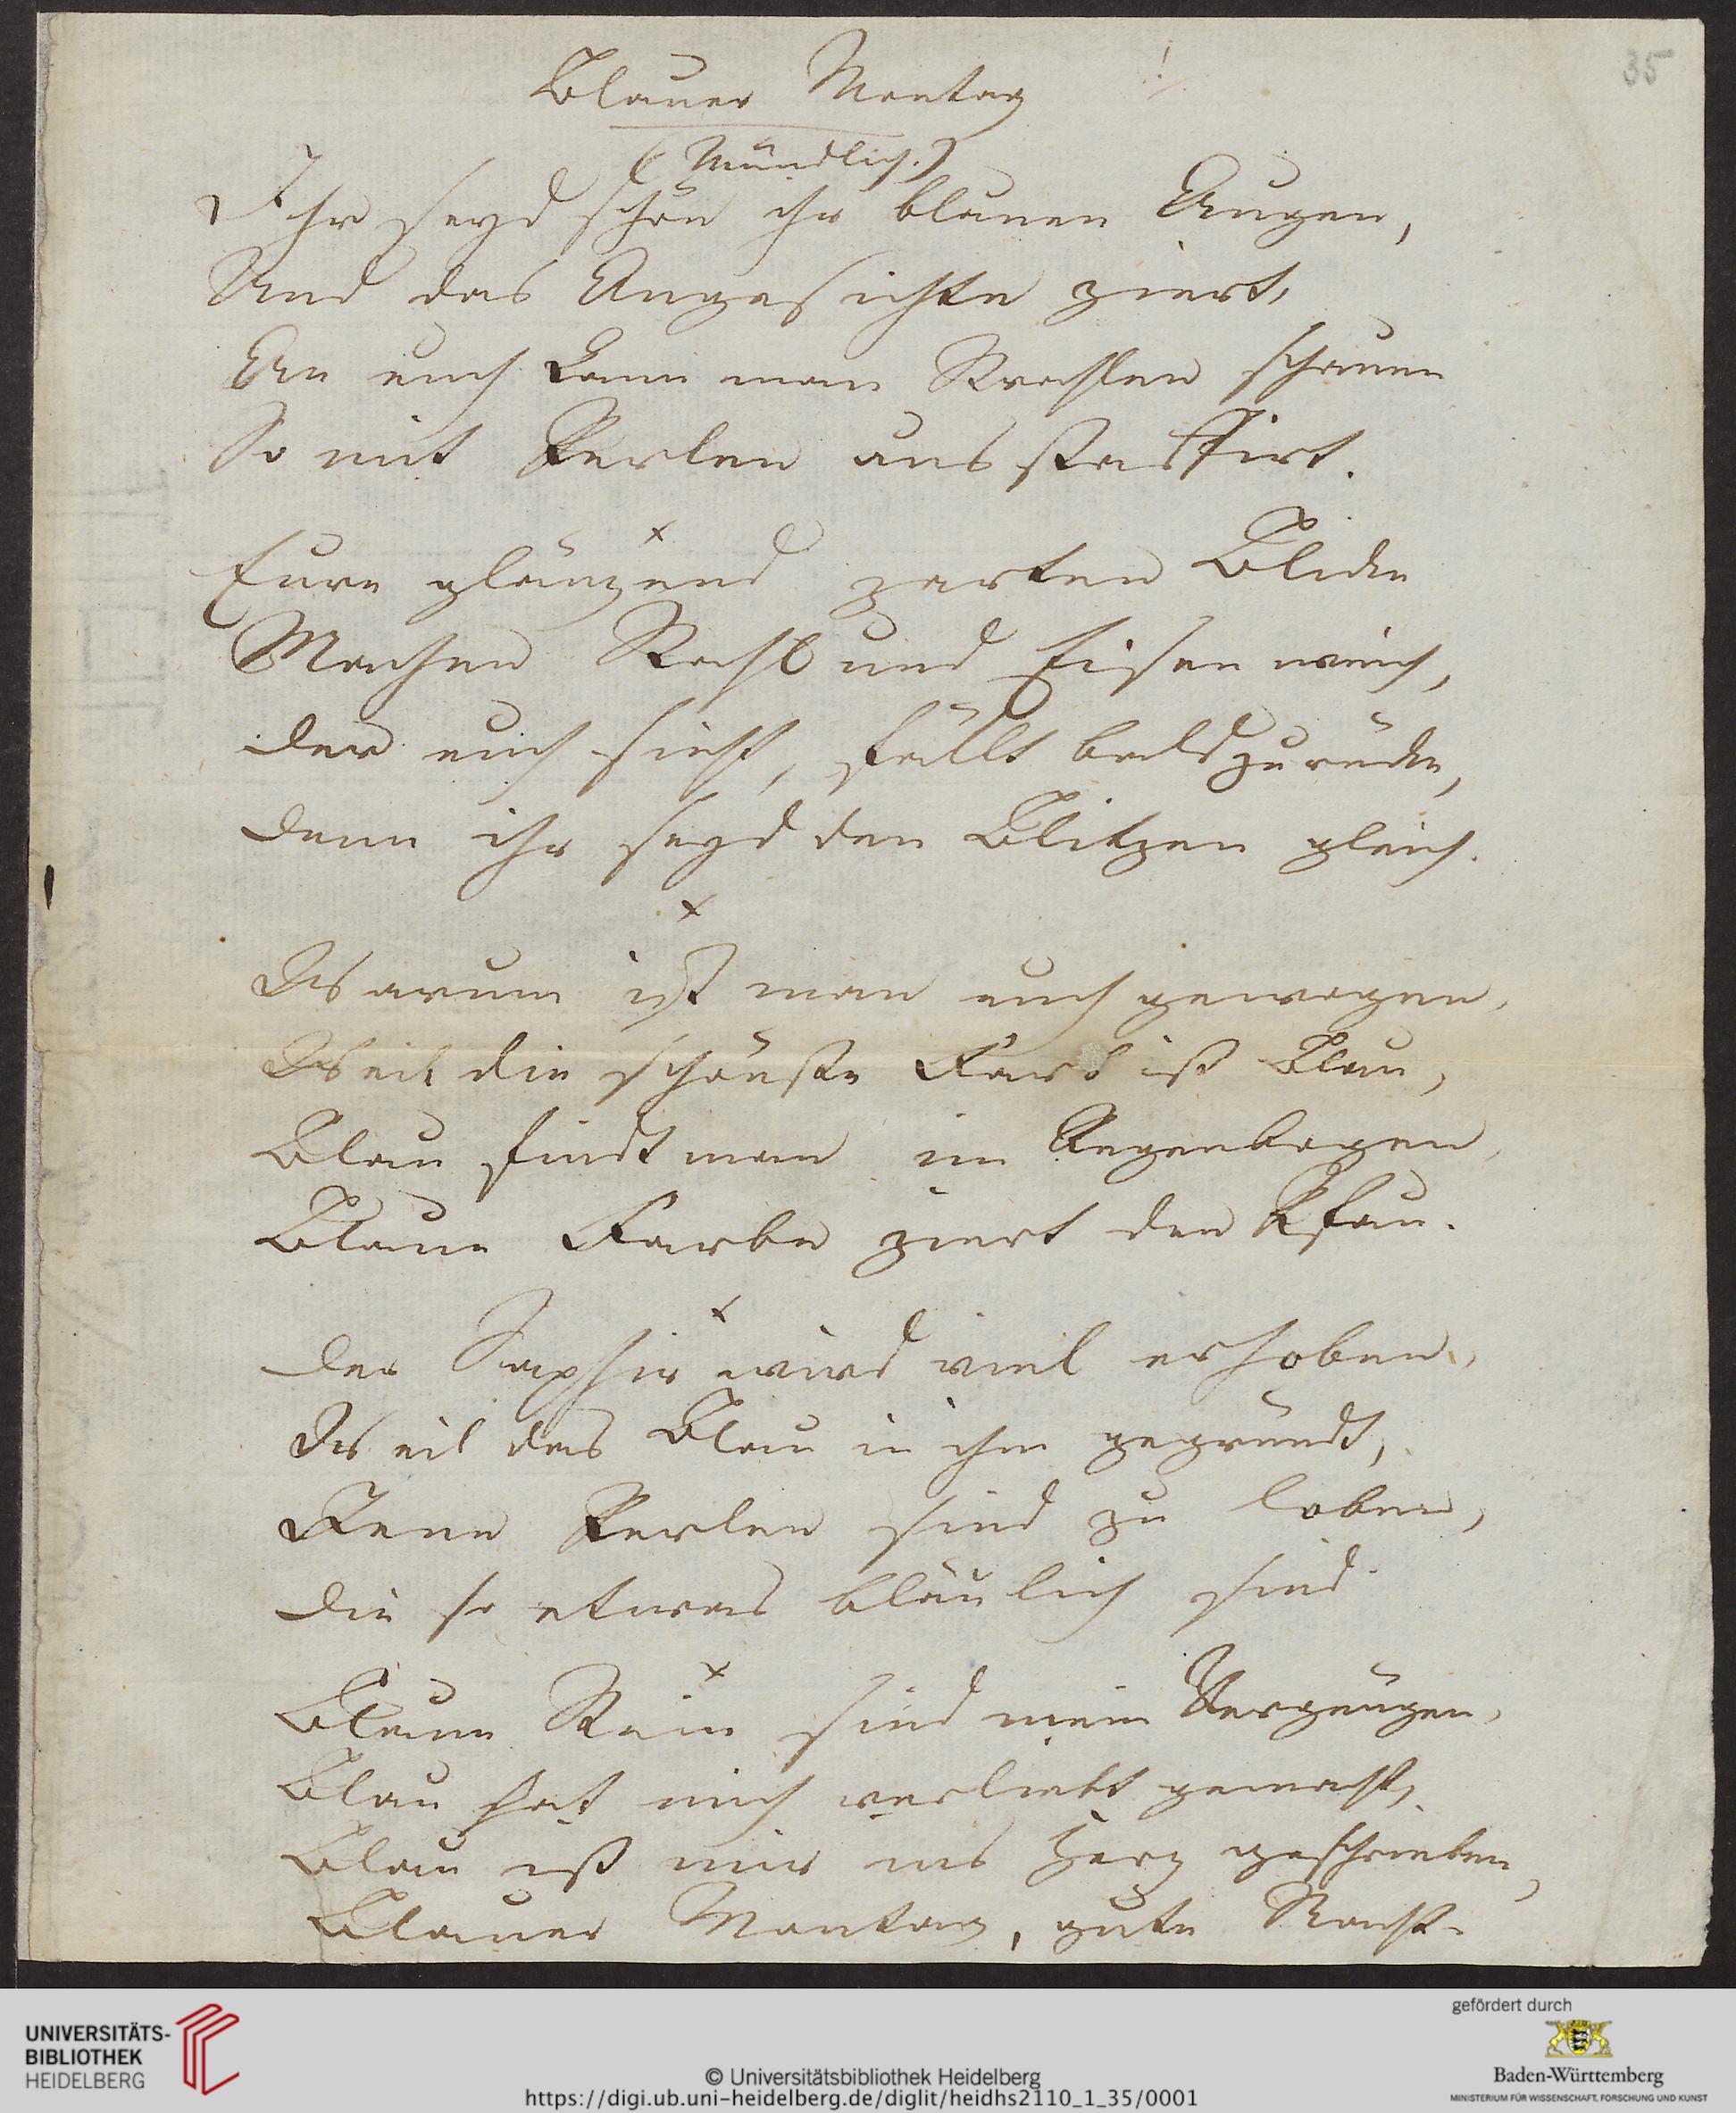 35
Blauer Montag
(Mündlich.)
Ihr seyd schön ihr blauen Augen,
Und das Angesichte ziert,
An euch kann man Strahlen schauen
So mit Perlen ausstaffirt.
Eure glänzend zarten Blicke
Machen Stahl und Eisen weich,
der euch sieht, fällt bald zurücke,
denn ihr seyd den Blitzen gleich.
Warum ist man euch gewogen,
Weil die schönste Farb ist Blau,
Blau findt man im Regenbogen,
Blaue Farbe ziert den Pfau.
der Saphir wird viel erhoben,
Weil das Blau in ihm gegründt,
Jene Perlen sind zu loben,
die so etwas bläulich sind
Blaue Stein sind mein Vergnügen,
Blau hat mich verliebt gemacht,
Blau ist mir ins Herz geschrieben,
Blauer Montag, gute Nacht.
UNIVERSITÄTS-
BIBLIOTHEK
HEIDELBERG
© Universitätsbibliothek Heidelberg
https://digi.ub.uni-heidelberg.de/diglit/heidhs2110_1_35/0001
gefördert durch
Baden-Württemberg
MINISTERIUM FÜR WISSENSCHAFT, FORSCHUNG UND KUNST